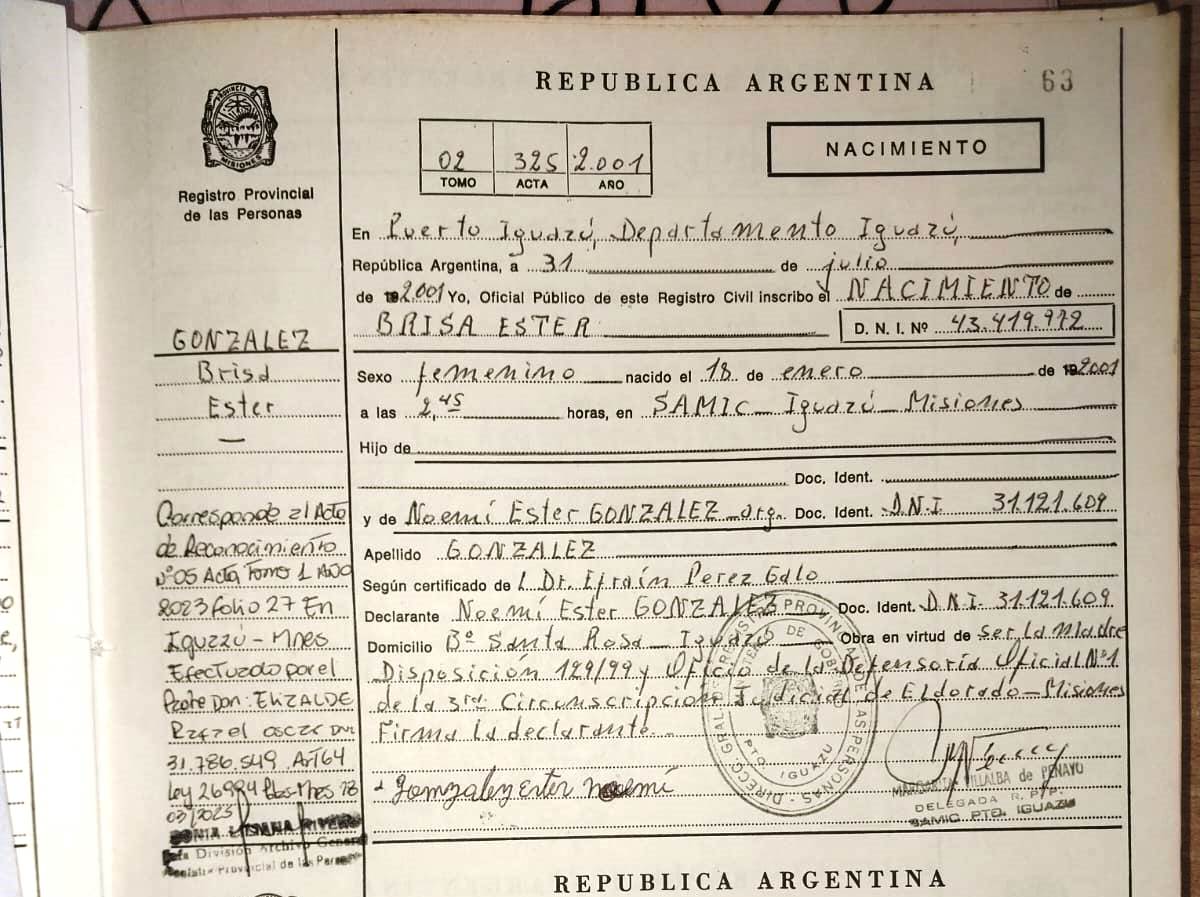 REPUBLICA ARGENTINA
63
PROVINCIA DE MISIONES
Registro Provincial
de las Personas
02 325 2.001
TOMO ACTA AÑO
NACIMIENTO
En Puerto Iguazú, Departamento Iguazú,
República Argentina, a 31 de julio
de 2.001 Yo, Oficial Público de este Registro Civil inscribo el NACIMIENTO de
BRISA ESTER D. N. I. Nº 43.419.972
Sexo femenino nacido el 18 de enero de 2001
a las 2,45 horas, en SAMIC Iguazú Misiones
Hijo de
Doc. Ident.
y de Noemí Ester GONZALEZ arg. Doc. Ident. D.N.I. 31.121.609
Apellido GONZALEZ
Según certificado de l Dr. Efraín Perez Gdlo
Declarante Noemí Ester GONZALEZ Doc. Ident. D.N.I. 31.121.609
Domicilio Bº Santa Rosa Iguazú Obra en virtud de ser la Madre
Disposición 129/99 y Oficio de la Defensoría Oficial Nº1
de la 3ra Circunscripción Judicial de Eldorado-Misiones
Firma la declarante
Gomzalez Ester Noemí
PTO IGUAZU
MARGARITA VILLALBA de PENAYO
DELEGADA R.P.P.
SAMIC PTO. IGUAZU
GONZALEZ
Brisa
Ester
Corresponde al Acta
de Reconocimiento
Nº05 Acta Tomo 1 AÑO
2023 folio 27 En
Iguazú-Mnes
Efectuado por el
Padre Don: ELIZALDE
Rafael oscar DNI
31.786.549 Art 64
Ley 26994 Pdas-Mnes 28
03/2025
SONIA RIVERO
Jefa División Archivo General
Registro Provincial de las Personas
REPUBLICA ARGENTINA